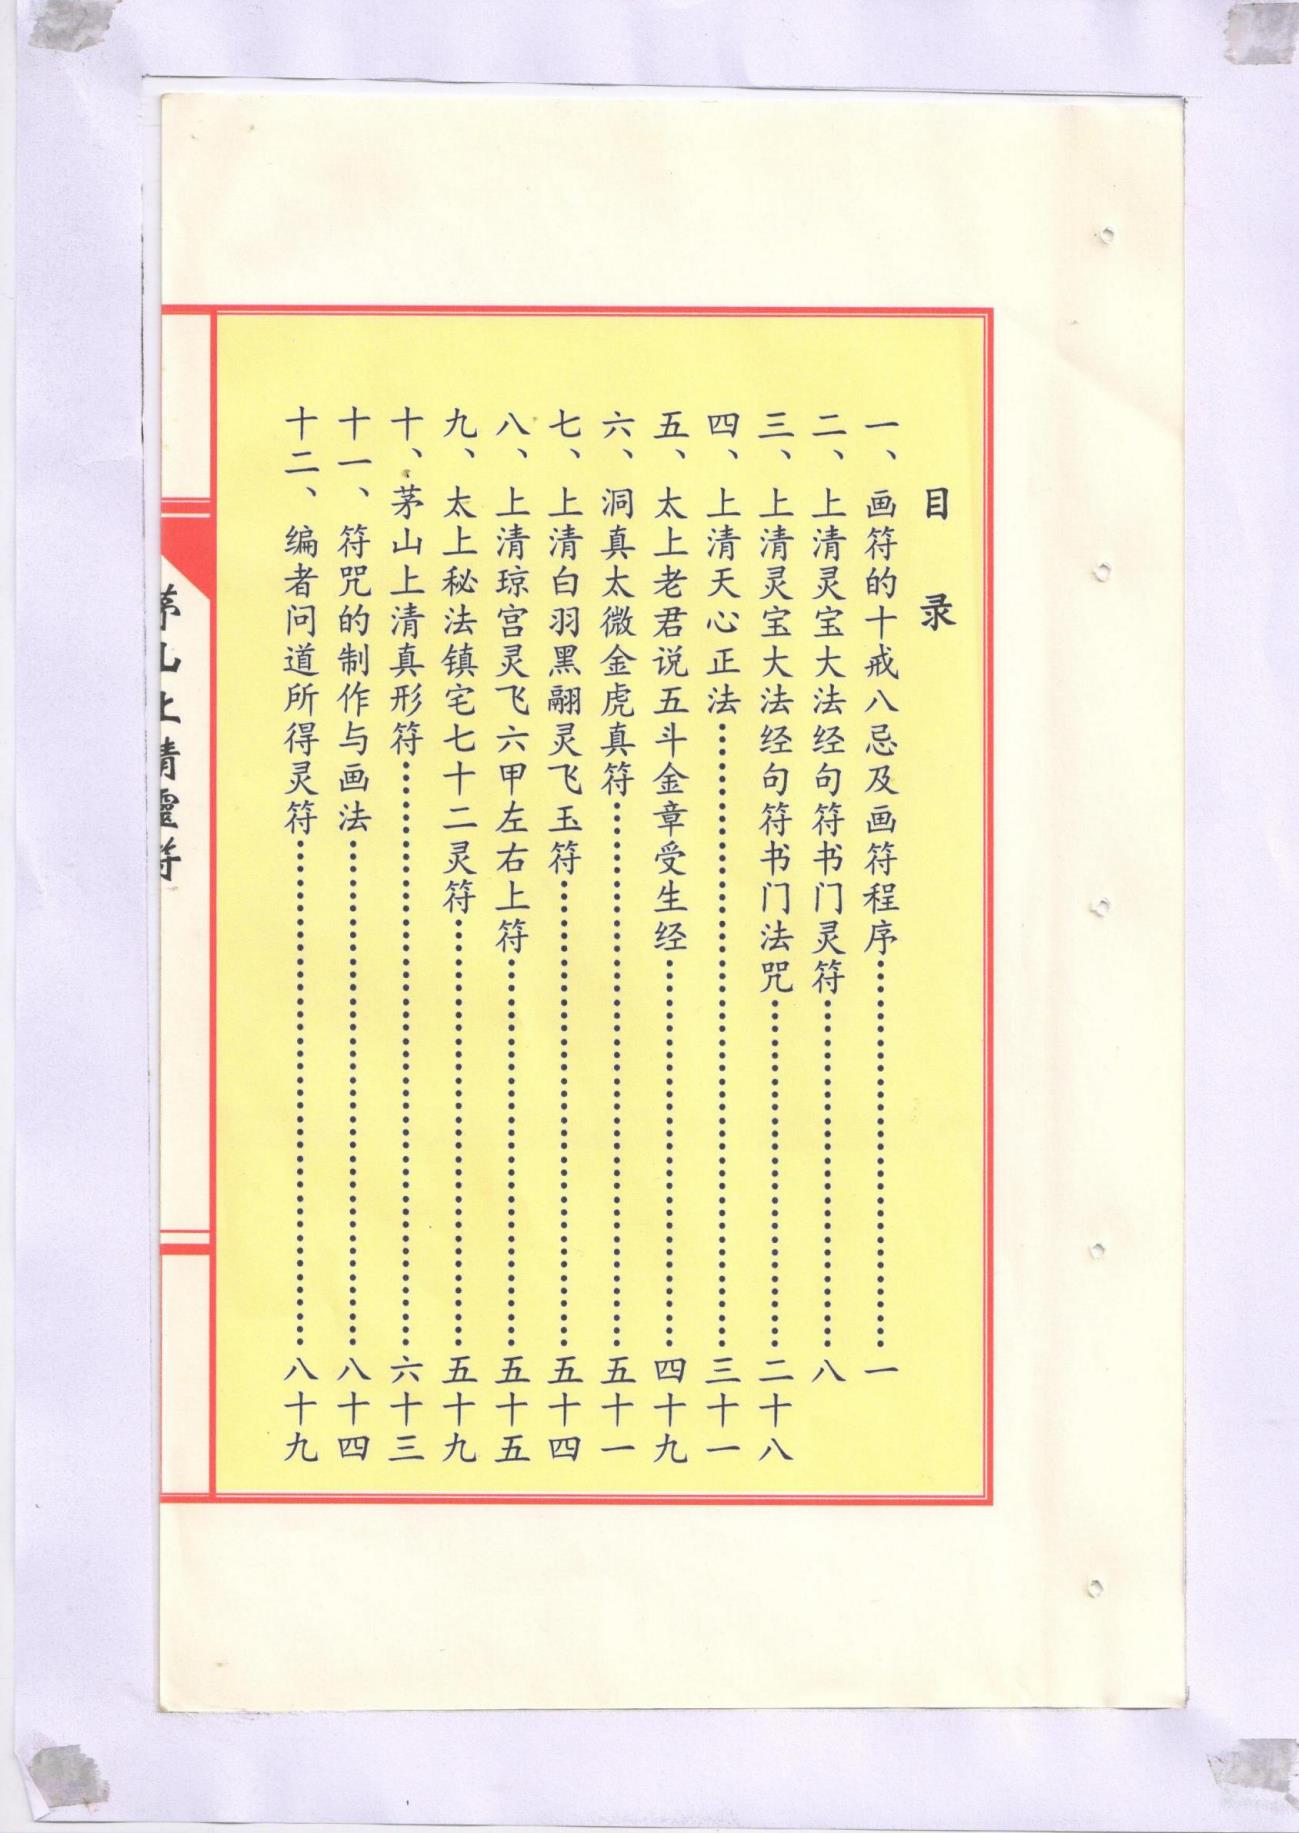 目录
一、画符的十戒八忌及画符程序……………………………一
二、上清灵宝大法经句符书门灵符……………………………八
三、上清灵宝大法经句符书门法咒……………………………二十八
四、上清天心正法……………………………三十一
五、太上老君说五斗金章受生经……………………………四十九
六、洞真太微金虎真符……………………………五十一
七、上清白羽黑翮灵飞玉符……………………………五十四
八、上清琼宫灵飞六甲左右上符……………………………五十五
九、太上秘法镇宅七十二灵符……………………………五十九
十、茅山上清真形符……………………………六十三
十一、符咒的制作与画法……………………………八十四
十二、编者问道所得灵符……………………………八十九
茅山上清靈符